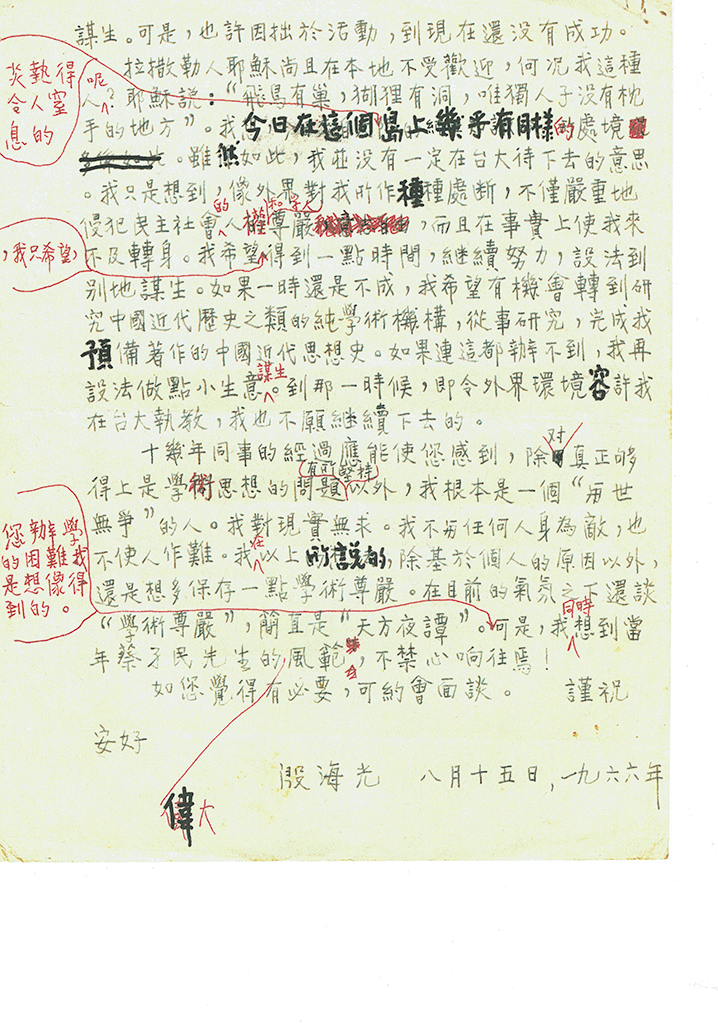 謀生。可是，也許因拙於活動，到現在還没有成功。
拉撒勒人耶穌尚且在本地不受歡迎，何況我這種
人？耶穌説：“飛鳥有巢，狐狸有洞，唯獨人子没有枕
呢
手的地方”。我今日在這個島上幾乎有同樣的處境
炎熱得
令人窒
息的
。雖然如此，我並没有一定在台大待下去的意思
。我只是想到，像外界對我所作種種處断，不僅嚴重地
侵犯民主社會人權尊嚴，而且在事實上使我來
的
和學人
不及轉身。我希望得到一點時間，繼續努力，設法到
，我只希望，
别地謀生。如果一時還是不成，我希望有機會轉到研
究中國近代歷史之類的純學術機構，從事研究，完成我
預備著作的中國近代思想史。如果連這都辦不到，我再
設法做點小生意。到那一時候，即令外界環境容許我
謀生
在台大執教，我也不願継續下去的。
十幾年同事的經過應能使您感到，除真正够
对
得上是學術思想的問題以外，我根本是一個“與世
有所堅持
無爭”的人。我對現實無求。我不與任何人身為敵，也
不使人作難。我以上所說的，除基於個人的原因以外，
在
還是想多保存一點學術尊嚴。在目前的氣氛之下還談
“學術尊嚴”，簡直是“天方夜譚”。可是，我想到當
同時
您辦學
的困難我
是想像得
到的。
年蔡孑民先生的風範，不禁心响往焉！
如您覺得有必要，可約會面談。 謹祝
安好
殷海光 八月十五日，一九六六年
偉大